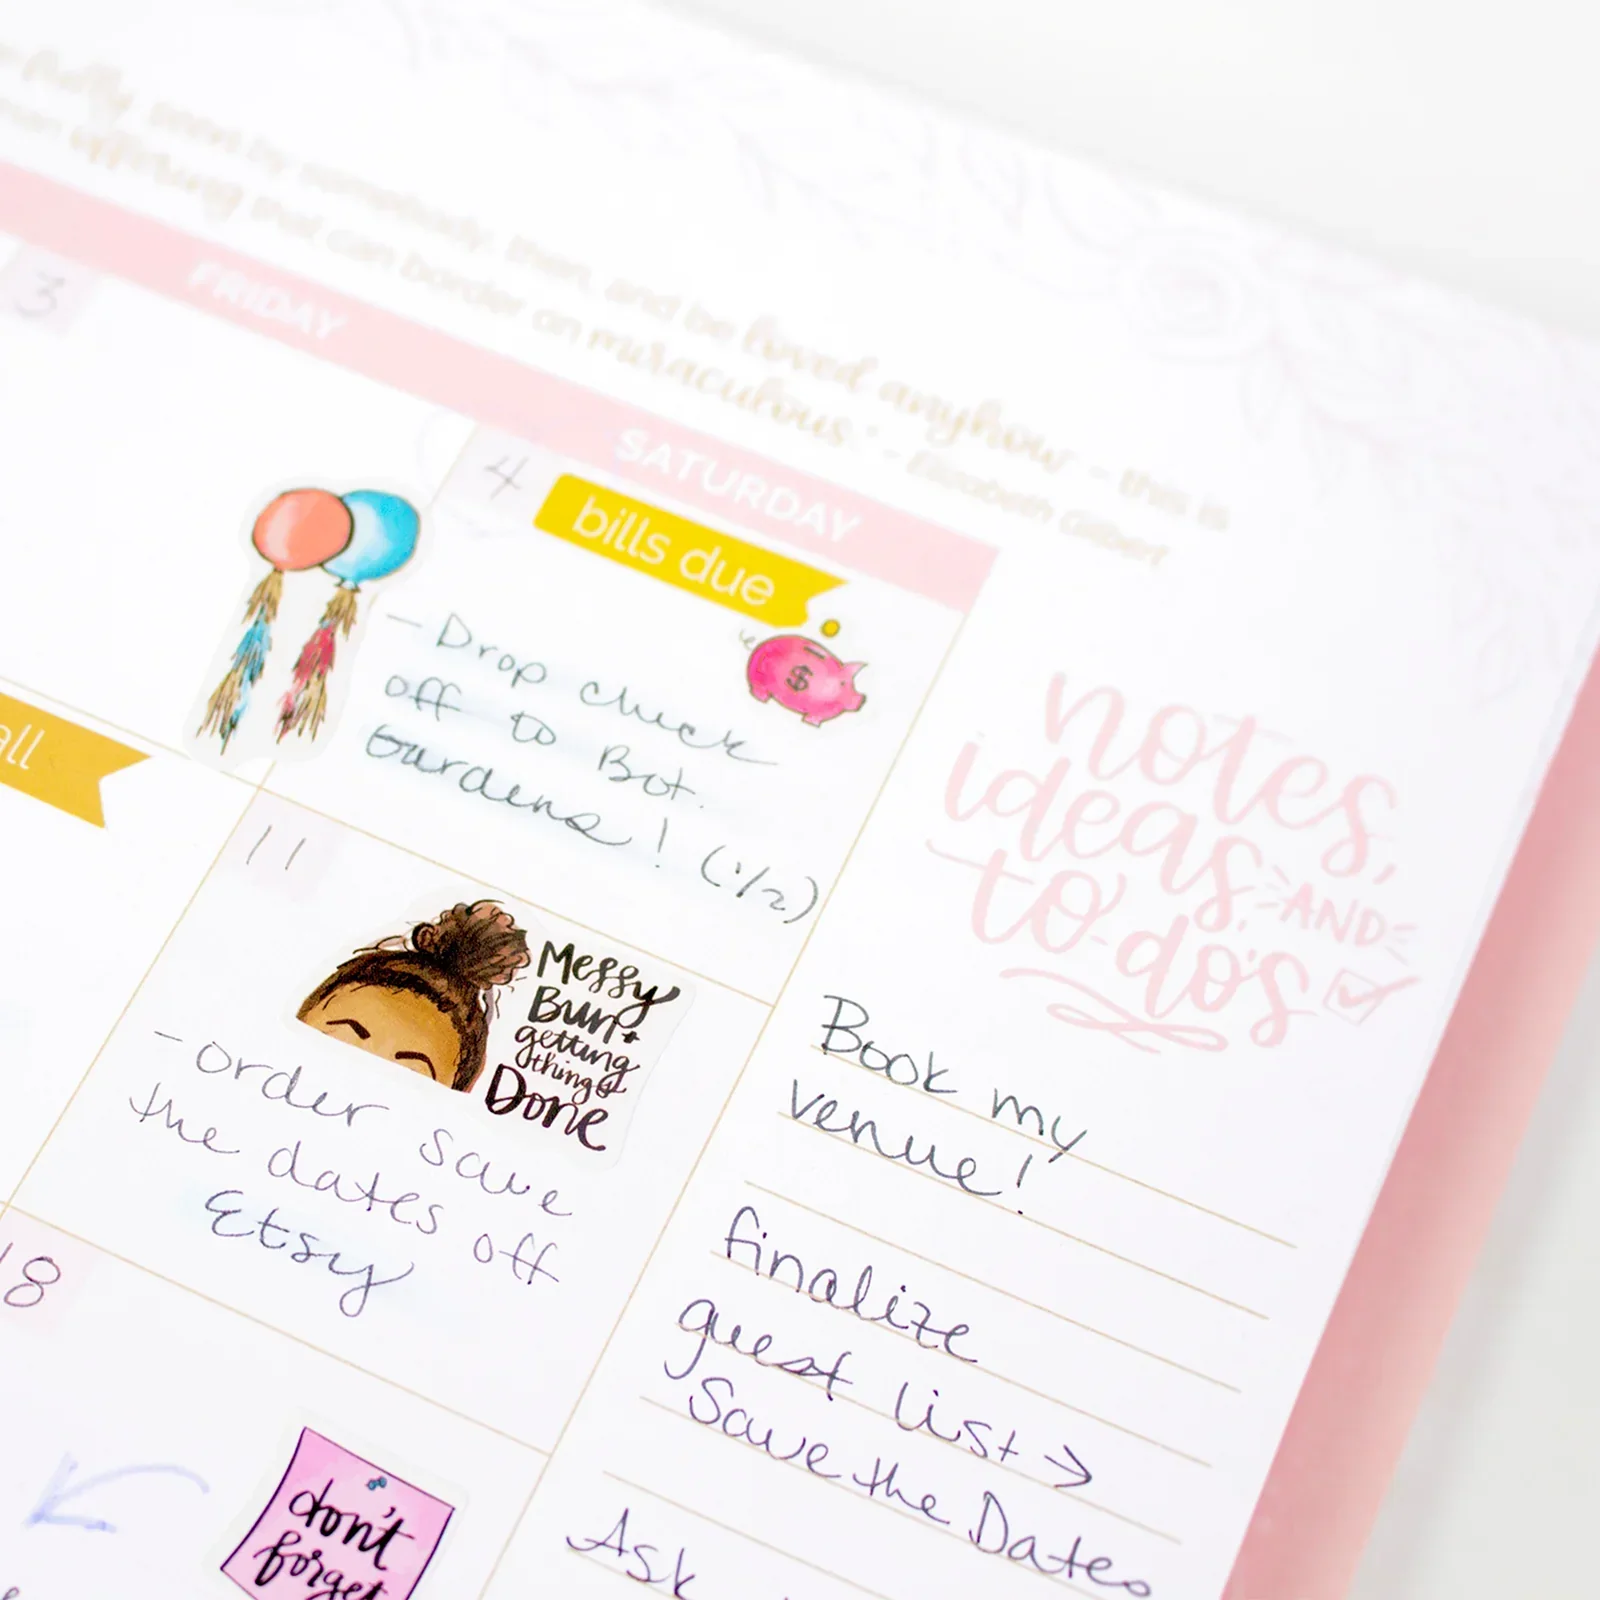 fully seen by somebody, then, and be loved anyhow - this is
offering that can border on miraculous." - Elizabeth Gilbert
FRIDAY
SATURDAY
3
4
bills due
$
- Drop check
off to Bot.
Gardens! (1/2)
all
11
Messy
Bun +
getting
things
Done
- order save
the dates off
Etsy
18
don't
forget
notes,
ideas, AND
to-do's
Book my
venue!
finalize
guest list →
Save the Dates
Ask